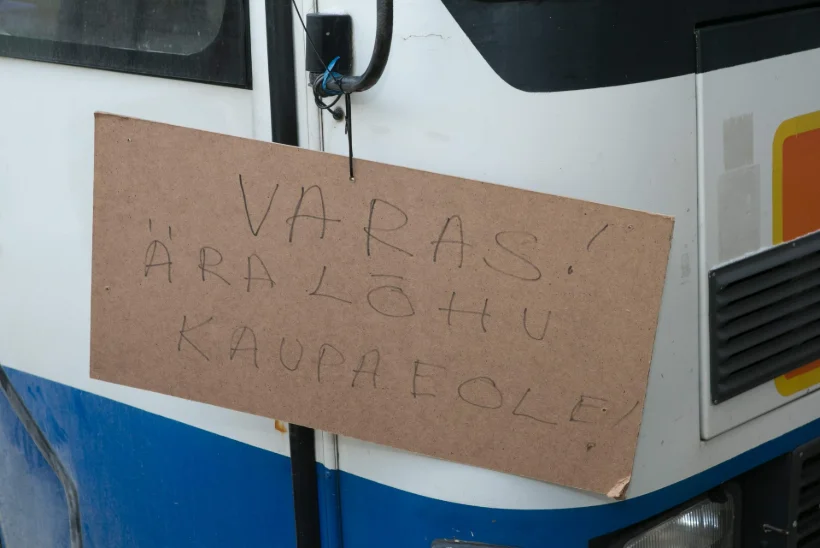 VARAS!
ÄRA LŌHU
KAUPA EOLE!